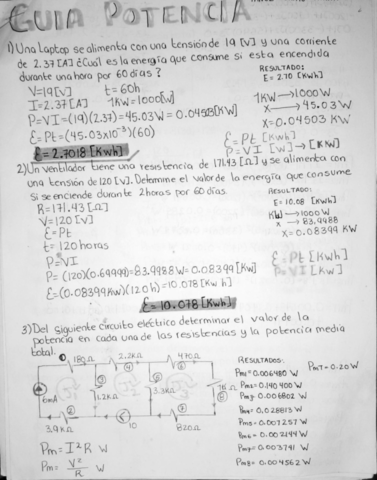 GUIA POTENCIA
1) Una laptop se alimenta con una tensión de 19 [V] y una corriente
de 2.37 [A] ¿Cual es la energía que consume si esta encendida
durante una hora por 60 días?
RESULTADO:
E = 2.70 [KWh]
V=19[V] t= 60h
I=2.37[A] 1KW=1000[W]
P=VI=(19)(2.37)=45.03W=0.04503[KW]
E=Pt=(45.03x10⁻³)(60)
E=2.7018[KWh]
1KW→1000W
X→45.03W
X=0.04503 KW
E=Pt [KWh]
P=VI [W]→[KW]
2) Un ventilador tiene una resistencia de 171.43 [Ω] y se alimenta con
una tensión de 120 [V]. Determine el valor de la energía que consume
si se enciende durante 2 horas por 60 días.
RESULTADO:
E= 10.08 [KWh]
R=171.43[Ω]
V=120[V]
E=Pt
t= 120 horas
P=VI
P= (120)(0.69999)=83.9988W=0.08399[KW]
E=(0.08399KW)(120h)=10.078[KW h]
E=10.078[KWh]
KW→1000W
X→83.9988
X=0.08399 KW
E=Pt [KWh]
P=VI [KW]
3) Del siguiente circuito eléctrico determinar el valor de la
potencia en cada una de las resistencias y la potencia media
total.
180Ω 2.2KΩ 470Ω
6mA 1.2KΩ 3.3KΩ 1KΩ
3.9KΩ 10 820Ω
Pm=I²R W
Pm= V²/R W
RESULTADOS:
Pm1=0.006480 W
Pm2=0.140400 W
Pm3=0.006802 W
Pm4=0.028813 W
Pm5=0.007257 W
Pm6=0.002144 W
Pm7=0.003741 W
Pm8=0.004562 W
PmT=0.20W